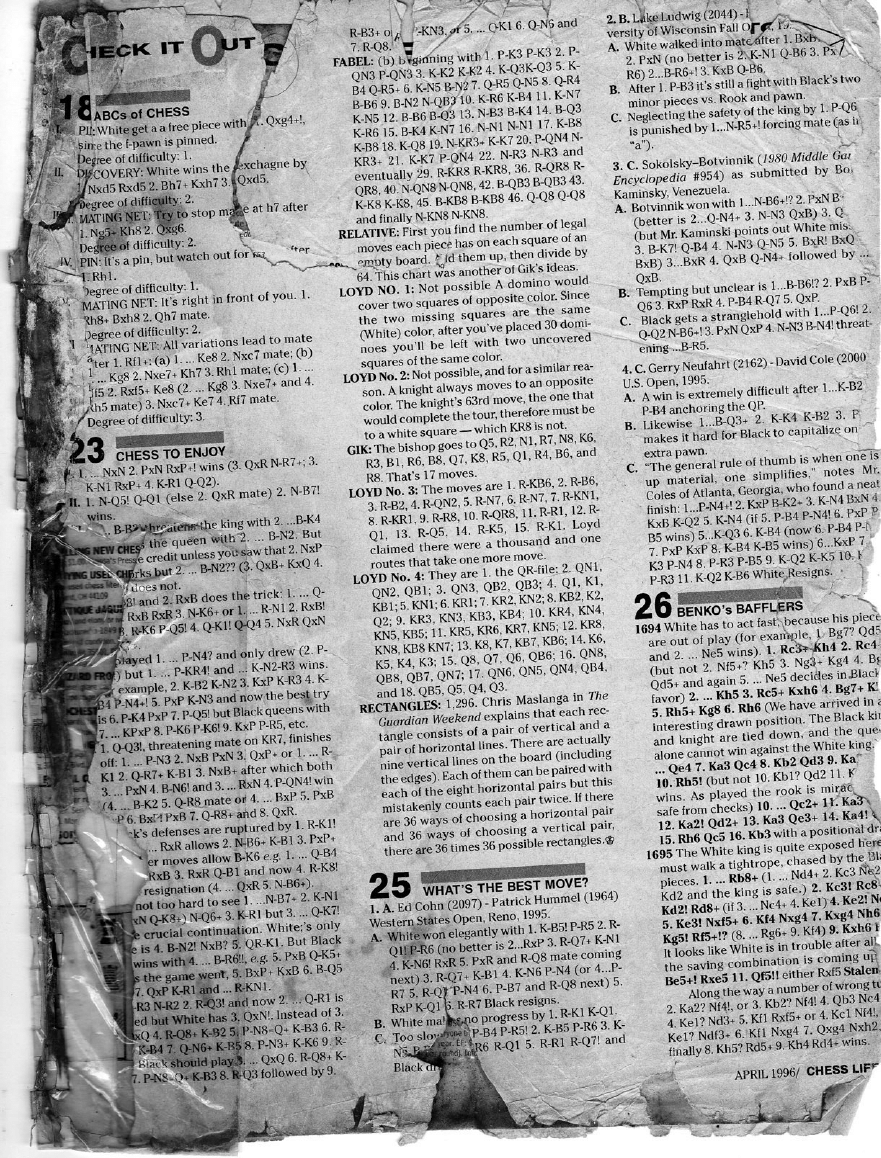 CHECK IT OUT
18 ABCs of CHESS
I. PIN: White get a a free piece with 1. Qxg4+!,
since the f-pawn is pinned.
Degree of difficulty: 1.
II. DISCOVERY: White wins the exchagne by
Nxd5 Rxd5 2. Bh7+ Kxh7 3. Qxd5.
Degree of difficulty: 2.
MATING NET: Try to stop mate at h7 after
1. Ng5+ Kh8 2. Qxg6.
Degree of difficulty: 2.
IV. PIN: It's a pin, but watch out for after
1. Rh1.
Degree of difficulty: 1.
MATING NET: It's right in front of you. 1.
Rh8+ Bxh8 2. Qh7 mate.
Degree of difficulty: 2.
MATING NET: All variations lead to mate
after 1. Rf1+: (a) 1. ... Ke8 2. Nxc7 mate; (b)
... Kg8 2. Nxe7+ Kh7 3. Rh1 mate; (c) 1. ...
2. Rxf5+ Ke8 (2. ... Kg8 3. Nxe7+ and 4.
Rh5 mate) 3. Nxc7+ Ke7 4. Rf7 mate.
Degree of difficulty: 3.
23 CHESS TO ENJOY
I. 1. ... NxN 2. PxN RxP+! wins (3. QxR N-R7+; 3.
K-N1 RxP+ 4. K-R1 Q-Q2).
II. 1. N-Q5! Q-Q1 (else 2. QxR mate) 2. N-B7!
wins.
threatens the king with 2. ...B-K4
the queen with 2. ... B-N2. But
credit unless you saw that 2. NxP
works but 2. ... B-N2?? (3. QxB+ KxQ 4.
does not.
and 2. RxB does the trick: 1. ... Q-
RxB RxR 3. N-K6+ or 1. ... R-N1 2. RxB!
R-K6 P-Q5! 4. Q-K1! Q-Q4 5. NxR QxN
played 1. ... P-N4? and only drew (2. P-
but 1. ... P-KR4! and ... K-N2-R3 wins.
example, 2. K-B2 K-N2 3. KxP K-R3 4. K-
P-N4+! 5. PxP K-N3 and now the best try
is 6. P-K4 PxP 7. P-Q5! but Black queens with
7. ... KPxP 8. P-K6 P-K6! 9. KxP P-R5, etc.
1. Q-Q3!, threatening mate on KR7, finishes
off: 1. ... P-N3 2. NxB PxN 3. QxP+ or 1. ... R-
K1 2. Q-R7+ K-B1 3. NxB+ after which both
3. ... PxN 4. B-N6! and 3. ... RxN 4. P-QN4! win
(4. ... B-K2 5. Q-R8 mate or 4. ... BxP 5. PxB
P 6. BxP PxB 7. Q-R8+ and 8. QxR.
defenses are ruptured by 1. R-K1!
RxR allows 2. N-B6+ K-B1 3. PxP+
moves allow B-K6 e.g. 1. ... Q-B4
RxB RxR Q-B1 and now 4. R-K8!
resignation (4. ... QxR 5. N-B6+).
not too hard to see 1. ...N-B7+ 2. K-N1
Q-K8+) N-Q6+ 3. K-R1 but 3. ... Q-K7!
crucial continuation. White;'s only
is 4. B-N2! NxB? 5. QR-K1. But Black
wins with 4. ... B-R6!!, e.g. 5. PxB Q-K5+
the game went, 5. BxP+ KxB 6. B-Q5
7. QxP K-R1 and ... R-KN1.
-R3 N-R2 2. R-Q3! and now 2. ... Q-R1 is
but White has 3. QxN!. Instead of 3.
4. Q-R8+ K-B2 5. P-N8=Q+ K-B3 6. R-
K-B4 7. Q-N6+ K-B5 8. P-N3+ K-K6 9. R-
Black should play 3. ... QxQ 6. R-Q8+ K-
7. P-N8=Q+ K-B3 8. R-Q3 followed by 9.
R-B3+ or P-KN3, or 5. ... Q-K1 6. Q-N6 and
7. R-Q8.
FABEL: (b) beginning with 1. P-K3 P-K3 2. P-
QN3 P-QN3 3. K-K2 K-K2 4. K-Q3K-Q3 5. K-
B4 Q-R5+ 6. K-N5 B-N2 7. Q-R5 Q-N5 8. Q-R4
B-B6 9. B-N2 N-QB3 10. K-R6 K-B4 11. K-N7
K-N5 12. B-B6 B-Q3 13. N-B3 B-K4 14. B-Q3
K-R6 15. B-K4 K-N7 16. N-N1 N-N1 17. K-B8
K-B8 18. K-Q8 19. N-KR3+ K-K7 20. P-QN4 N-
KR3+ 21. K-K7 P-QN4 22. N-R3 N-R3 and
eventually 29. R-KR8 R-KR8, 36. R-QR8 R-
QR8, 40. N-QN8 N-QN8, 42. B-QB3 B-QB3 43.
K-K8 K-K8, 45. B-KB8 B-KB8 46. Q-Q8 Q-Q8
and finally N-KN8 N-KN8.
RELATIVE: First you find the number of legal
moves each piece has on each square of an
empty board. Add them up, then divide by
64. This chart was another of Gik's ideas.
LOYD NO. 1: Not possible A domino would
cover two squares of opposite color. Since
the two missing squares are the same
(White) color, after you've placed 30 domi-
noes you'll be left with two uncovered
squares of the same color.
LOYD No. 2: Not possible, and for a similar rea-
son. A knight always moves to an opposite
color. The knight's 63rd move, the one that
would complete the tour, therefore must be
to a white square — which KR8 is not.
GIK: The bishop goes to Q5, R2, N1, R7, N8, K6,
R3, B1, R6, B8, Q7, K8, R5, Q1, R4, B6, and
R8. That's 17 moves.
LOYD No. 3: The moves are 1. R-KB6, 2. R-B6,
3. R-B2, 4. R-QN2, 5. R-N7, 6. R-N7, 7. R-KN1,
8. R-KR1, 9. R-R8, 10. R-QR8, 11. R-R1, 12. R-
Q1, 13. R-Q5, 14. R-K5, 15. R-K1. Loyd
claimed there were a thousand and one
routes that take one more move.
LOYD No. 4: They are 1. the QR-file; 2. QN1,
QN2, QB1; 3. QN3, QB2, QB3; 4. Q1, K1,
KB1; 5. KN1; 6. KR1; 7. KR2, KN2; 8. KB2, K2,
Q2; 9. KR3, KN3, KB3, KB4; 10. KR4, KN4,
KN5, KB5; 11. KR5, KR6, KR7, KN5; 12. KR8,
KN8, KB8 KN7; 13. K8, K7, KB7, KB6; 14. K6,
K5, K4, K3; 15. Q8, Q7, Q6, QB6; 16. QN8,
QB8, QB7, QN7; 17. QN6, QN5, QN4, QB4,
and 18. QB5, Q5, Q4, Q3.
RECTANGLES: 1,296. Chris Maslanga in The
Guardian Weekend explains that each rec-
tangle consists of a pair of vertical and a
pair of horizontal lines. There are actually
nine vertical lines on the board (including
the edges). Each of them can be paired with
each of the eight horizontal pairs but this
mistakenly counts each pair twice. If there
are 36 ways of choosing a horizontal pair
and 36 ways of choosing a vertical pair,
there are 36 times 36 possible rectangles.
25 WHAT'S THE BEST MOVE?
1. A. Ed Cohn (2097) - Patrick Hummel (1964)
Western States Open, Reno, 1995.
A. White won elegantly with 1. K-B5! P-R5 2. R-
Q1! P-R6 (no better is 2...RxP 3. R-Q7+ K-N1
4. K-N6! RxR 5. PxR and R-Q8 mate coming
next) 3. R-Q7+ K-B1 4. K-N6 P-N4 (or 4...P-
R7 5. R-Q1 P-N4 6. P-B7 and R-Q8 next) 5.
RxP K-Q1 6. R-R7 Black resigns.
B. White makes no progress by 1. R-K1 K-Q1.
C. Too slow P-B4 P-R5! 2. K-B5 P-R6 3. K-
R6 R-Q1 5. R-R1 R-Q7! and
Black
2. B. Lake Ludwig (2044) -
versity of Wisconsin Fall
A. White walked into mate after 1. BxB
2. PxN (no better is 2. K-N1 Q-B6 3. Px
R6) 2...B-R6+! 3. KxB Q-B6.
B. After 1. P-B3 it's still a fight with Black's two
minor pieces vs. Rook and pawn.
C. Neglecting the safety of the king by 1. P-Q6
is punished by 1...N-R5+! forcing mate (as
"a").
3. C. Sokolsky–Botvinnik (1980 Middle
Encyclopedia #954) as submitted by
Kaminsky, Venezuela.
A. Botvinnik won with 1...N-B6+!? 2. PxN
(better is 2...Q-N4+ 3. N-N3 QxB) 3. Q
(but Mr. Kaminski points out White
3. B-K7! Q-B4 4. N-N3 Q-N5 5. BxR! BxQ
BxB) 3...BxR 4. QxB Q-N4+ followed by ...
QxB.
B. Tempting but unclear is 1...B-B6!? 2. PxB P-
Q6 3. RxP RxR 4. P-B4 R-Q7 5. QxP.
C. Black gets a stranglehold with 1...P-Q6! 2.
Q-Q2 N-B6+! 3. PxN QxP 4. N-N3 B-N4! threat-
ening ...B-R5.
4. C. Gerry Neufahrt (2162) - David Cole (2000
U.S. Open, 1995.
A. A win is extremely difficult after 1...K-B2
P-B4 anchoring the QP.
B. Likewise 1...B-Q3+ 2. K-K4 K-B2 3. P
makes it hard for Black to capitalize on
extra pawn.
C. "The general rule of thumb is when one is
up material, one simplifies," notes Mr.
Coles of Atlanta, Georgia, who found a neat
finish: 1...P-N4+! 2. KxP B-K2+ 3. K-N4 BxN 4.
KxB K-Q2 5. K-N4 (if 5. P-B4 P-N4! 6. PxP
B5 wins) 5...K-Q3 6. K-B4 (now 6. P-B4 P-
7. PxP KxP 8. K-B4 K-B5 wins) 6...KxP 7.
K3 P-N4 8. P-R3 P-B5 9. K-Q2 K-K5 10.
P-R3 11. K-Q2 K-B6 White Resigns.
26 BENKO's BAFFLERS
1694 White has to act fast, because his piece
are out of play (for example, 1. Bg7? Qd5
and 2. ... Ne5 wins). 1. Rc3+ Kh4 2. Rc4
(but not 2. Nf5+? Kh5 3. Ng3+ Kg4 4. Bg
Qd5+ and again 5. ... Ne5 decides in Black
favor) 2. ... Kh5 3. Rc5+ Kxh6 4. Bg7+ K!
5. Rh5+ Kg8 6. Rh6 (We have arrived in a
interesting drawn position. The Black kin
and knight are tied down, and the que
alone cannot win against the White king.
... Qe4 7. Ka3 Qc4 8. Kb2 Qd3 9. Ka
10. Rh5! (but not 10. Kb1? Qd2 11. K
wins. As played the rook is mirac
safe from checks) 10. ... Qc2+ 11. Ka3
12. Ka2! Qd2+ 13. Ka3 Qe3+ 14. Ka4!
15. Rh6 Qc5 16. Kb3 with a positional dr
1695 The White king is quite exposed here
must walk a tightrope, chased by the Bla
pieces. 1. ... Rb8+ (1. ... Nd4+ 2. Kc3 Ne2
Kd2 and the king is safe.) 2. Kc3! Rc8
Kd2! Rd8+ (if 3. ... Nc4+ 4. Kc1.) 4. Ke2! N
5. Ke3! Nxf5+ 6. Kf4 Nxg4 7. Kxg4 Nh6
Kg5! Rf5+!? (8. ... Rg6+ 9. Kf4) 9. Kxh6
It looks like White is in trouble after all
the saving combination is coming up
Be5+! Rxe5 11. Qf5!! either Rxf5 Stalen
Along the way a number of wrong tu
2. Ka2? Nf4!, or 3. Kb2? Nf4! 4. Qb3 Nc4
4. Ke1? Nd3+ 5. Kf1 Rxf5+ or 4. Kc1 Nf4!,
Ke1? Ndf3+ 6. Kf1 Nxg4 7. Qxg4 Nxh2
finally 8. Kh5? Rd5+ 9. Kh4 Rd4+ wins.
APRIL 1996/ CHESS LIFE